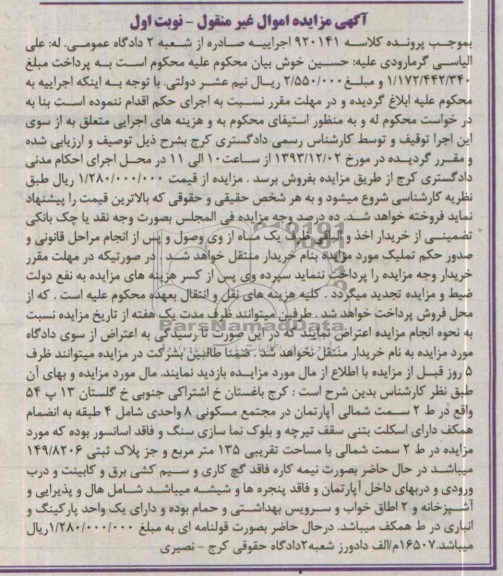 آگهی مزایده اموال غیر منقول - نوبت اول
بموجب پرونده کلاسه ۹۲۰۱۴۱ اجراییه صادره از شعبه ۲ دادگاه عمومی. له: علی
الیاسی گرمارودی علیه: حسین خوش بیان محکوم علیه محکوم است به پرداخت مبلغ
۱/۱۷۲/۴۴۲/۳۴۰ و مبلغ ۲/۵۵۰/۰۰۰ ریال نیم عشر دولتی. با توجه به اینکه اجراییه به
محکوم علیه ابلاغ گردیده و در مهلت مقرر نسبت به اجرای حکم اقدام ننموده است بنا به
در خواست محکوم له و به منظور استیفای محکوم به و هزینه های اجرایی متعلق به از سوی
این اجرا توقیف و توسط کارشناس رسمی دادگستری کرج بشرح ذیل توصیف و ارزیابی شده
و مقرر گردیده در مورخ ۱۳۹۳/۱۲/۰۲ از ساعت ۱۰ الی ۱۱ در محل اجرای احکام مدنی
دادگستری کرج از طریق مزایده بفروش برسد . مزایده از قیمت ۱/۲۸۰/۰۰۰/۰۰۰ ریال طبق
نظریه کارشناسی شروع میشود و به هر شخص حقیقی و حقوقی که بالاترین قیمت را پیشنهاد
نماید فروخته خواهد شد. ده درصد وجه مزایده فی المجلس بصورت وجه نقد یا چک بانکی
تضمینی از خریدار اخذ و الباقی ظرف یک ماه از وی وصول و پس از انجام مراحل قانونی و
صدور حکم تملیک مورد مزایده بنام خریدار منتقل خواهد شد . در صورتیکه در مهلت مقرر
خریدار وجه مزایده را پرداخت ننماید سپرده وی پس از کسر هزینه های مزایده به نفع دولت
ضبط و مزایده تجدید میگردد . کلیه هزینه های نقل و انتقال بعهده محکوم علیه است . که از
محل فروش پرداخت خواهد شد . طرفین میتوانند ظرف مدت یک هفته از تاریخ مزایده نسبت
به نحوه انجام مزایده اعتراض نمایند که در این صورت تا رسیدگی به اعتراض از سوی دادگاه
مورد مزایده به نام خریدار منتقل نخواهد شد . ضمنا طالبین بشرکت در مزایده میتوانند ظرف
۵ روز قبل از مزایده با اطلاع از مال مورد مزایده بازدید نمایند. مال مورد مزایده و بهای آن
طبق نظر کارشناس بدین شرح است : کرج باغستان خ اشتراکی جنوبی خ گلستان ۱۳ پ ۵۴
واقع در ط ۲ سمت شمالی آپارتمان در مجتمع مسکونی ۸ واحدی شامل ۴ طبقه به انضمام
همکف دارای اسکلت بتنی سقف تیرچه و بلوک نما سازی سنگ و فاقد اسانسور بوده که مورد
مزایده در ط ۲ سمت شمالی با مساحت تقریبی ۱۳۵ متر مربع و جز پلاک ثبتی ۱۴۹/۸۲۰۶
میباشد در حال حاضر بصورت نیمه کاره فاقد گچ کاری و سیم کشی برق و کابینت و درب
ورودی و دربهای داخل آپارتمان و فاقد پنجره ها و شیشه میباشد شامل هال و پذیرایی و
آشپزخانه و ۲ اطاق خواب و سرویس بهداشتی و حمام بوده و دارای یک واحد پارکینگ و
انباری در ط همکف میباشد. درحال حاضر بصورت قولنامه ای به مبلغ ۱/۲۸۰/۰۰۰/۰۰۰ ریال
میباشد.۱۶۵۰۷م/الف دادورز شعبه۲دادگاه حقوقی کرج - نصیری
ParsNamadData